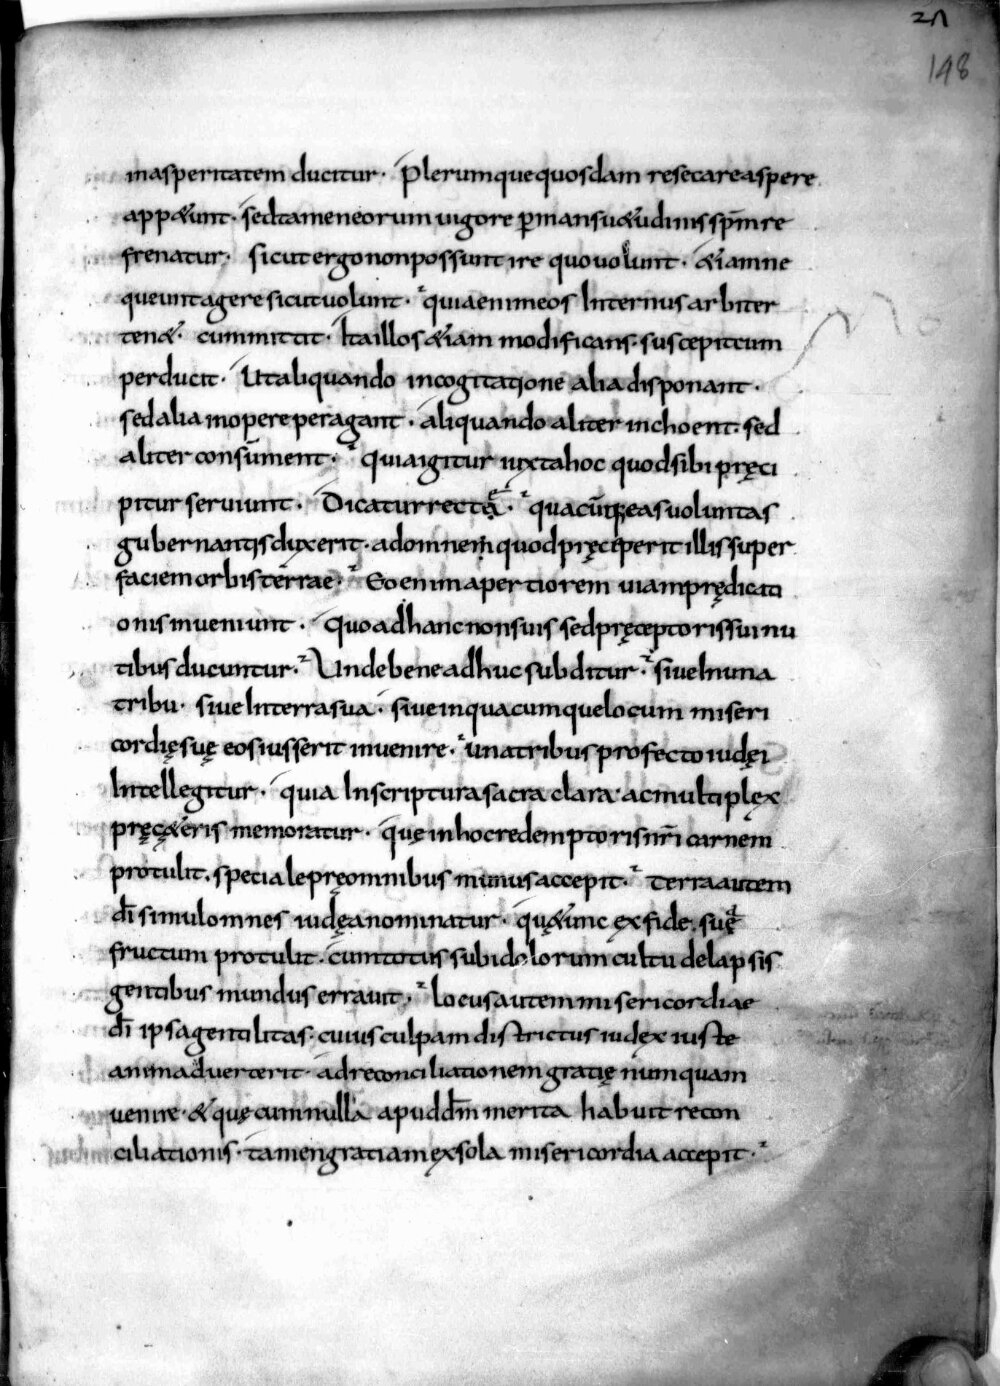 21
148
inasperitatem ducitur· Plerumque quosdam resecare aspere
app&unt· sed tamen eorum uigore p̱ mansu&udinis sp̄m re
frenatur· sicut ergo non possunt ire quo uolunt· &iam ne
queunt agere sicut uolunt· quia enim eos Internus arbiter
ten&· cum mittit· Ita illos &iam modificans suscepit cum
perducit· Ut aliquando in cogitatione alia disponant·
sed alia in opere peragant· aliquando aliter inchoent· sed
aliter consūment· Quia igitur iuxta hoc quod sibi pręci
pitur seruiunt· Dicatur rectę· quacūq; eas uoluntas
gubernantis duxerit· ad omnem quod pręceperit illis super
faciem orbis terrae· Eo enim apertiorem uiam prędicati
onis inueniunt· Quo ad hanc non suis sed pręceptoris sui nu
tibus ducuntur· Unde bene adhuc subditur· siue In una
tribu· siue In terra sua· siue in quacumque locum miseri
cordię suę eos iusserit inuenire· una tribus profecto iudęi
Intellegitur· quia In scriptura sacra clara ac multiplex
pręc&eris memoratur· quę in hoc redemptoris nr̄i carnem
protulit· speciale prę omnibus munus accepit· Terra autem
dī simul omnes iudęa nominatur· quę &unc ex fide suę
fructum protulit· cum totus sub idolorum cultu delapsis
gentibus mundus errauit· locus autem misericordiae
dī ipsa gentilitas· cuius culpam districtus iudex iuste
animaduerterit· ad reconciliationem gratię numquam
uenire· & quę cum nulla apud dm̄ merita habuit recon
ciliationis· tamen gratiam ex sola misericordia accepit·